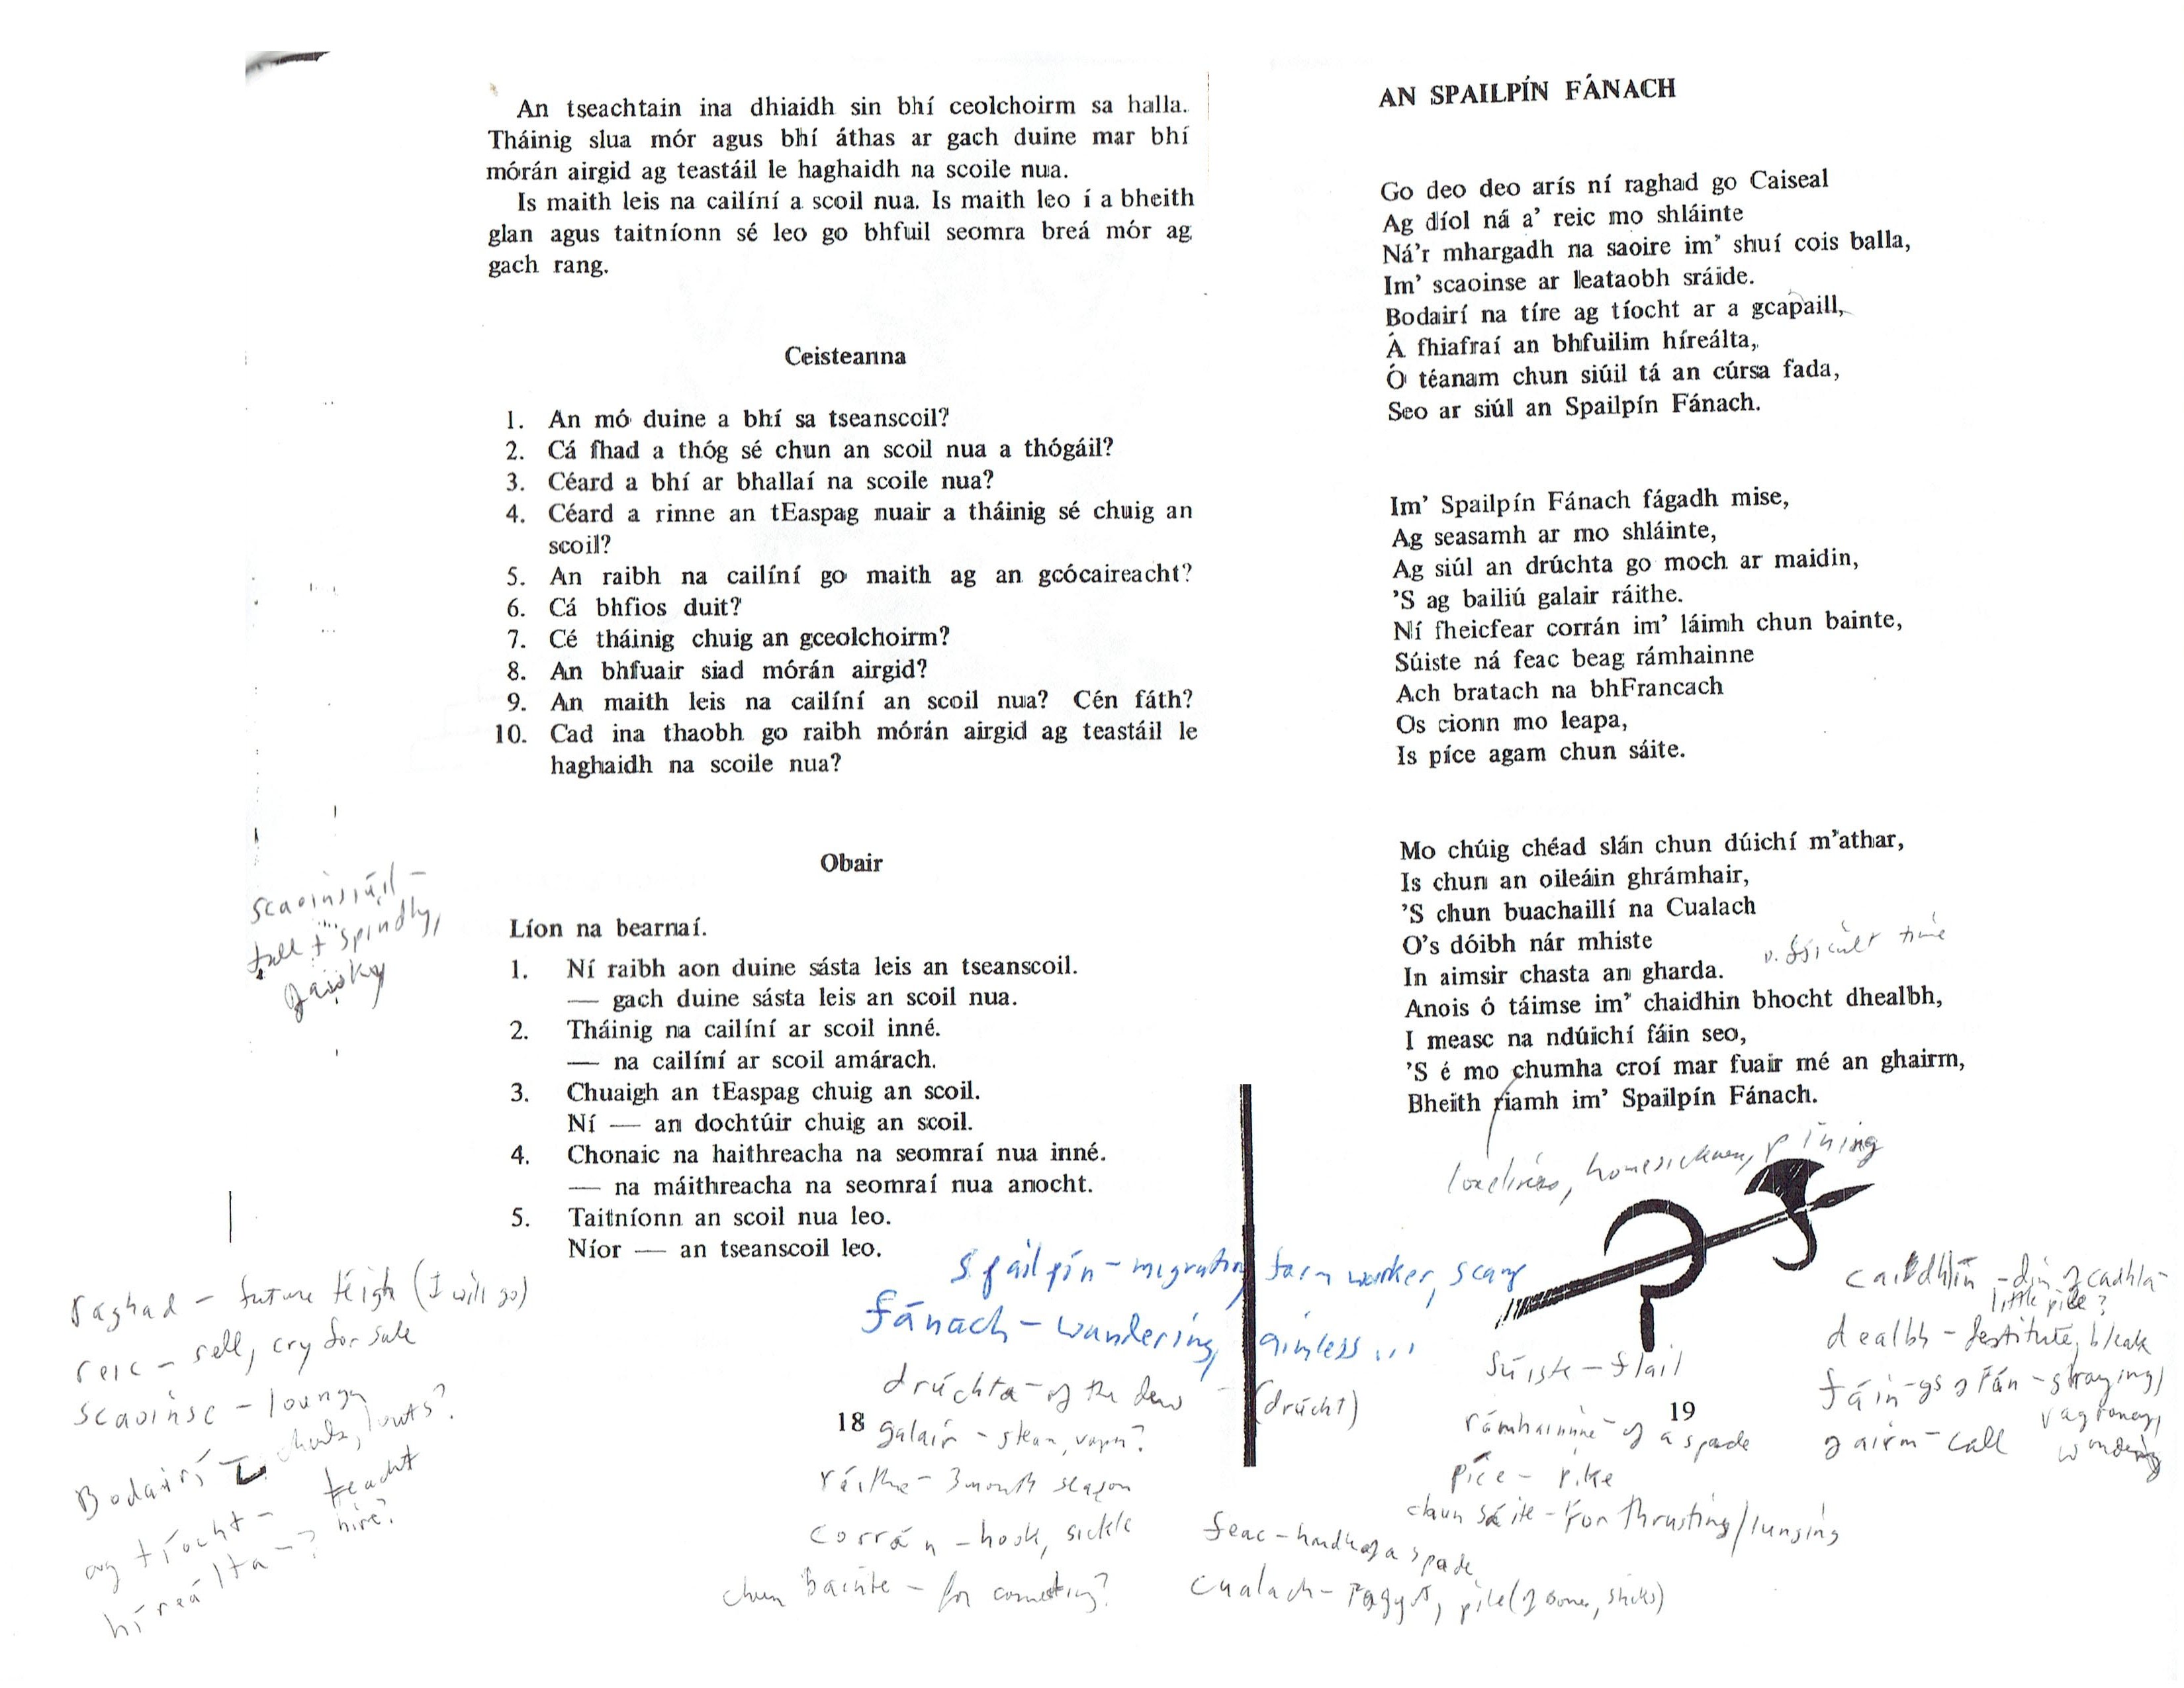 An tseachtain ina dhiaidh sin bhí ceolchoirm sa halla.
Tháinig slua mór agus bhí áthas ar gach duine mar bhí
mórán airgid ag teastáil le haghaidh na scoile nua.
Is maith leis na cailíní a scoil nua. Is maith leo í a bheith
glan agus taitníonn sé leo go bhfuil seomra breá mór ag
gach rang.
Ceisteanna
1. An mó duine a bhí sa tseanscoil?
2. Cá fhad a thóg sé chun an scoil nua a thógáil?
3. Céard a bhí ar bhallaí na scoile nua?
4. Céard a rinne an tEaspag nuair a tháinig sé chuig an
scoil?
5. An raibh na cailíní go maith ag an gcócaireacht?
6. Cá bhfios duit?
7. Cé tháinig chuig an gceolchoirm?
8. An bhfuair siad mórán airgid?
9. An maith leis na cailíní an scoil nua? Cén fáth?
10. Cad ina thaobh go raibh mórán airgid ag teastáil le
haghaidh na scoile nua?
Obair
Líon na bearnaí.
1. Ní raibh aon duine sásta leis an tseanscoil.
— gach duine sásta leis an scoil nua.
2. Tháinig na cailíní ar scoil inné.
— na cailíní ar scoil amárach.
3. Chuaigh an tEaspag chuig an scoil.
Ní — an dochtúir chuig an scoil.
4. Chonaic na haithreacha na seomraí nua inné.
— na máithreacha na seomraí nua anocht.
5. Taitníonn an scoil nua leo.
Níor — an tseanscoil leo.
scaoinsiúil –
tall + spindly,
gawky
raghad – future téigh (I will go)
reic – sell, cry for sale
scaoinse –
Bodairí – louts?
ag tíocht – teacht
híreálta – ? hire?
18
AN SPAILPÍN FÁNACH
Go deo deo arís ní raghad go Caiseal
Ag díol ná a' reic mo shláinte
Ná'r mhargadh na saoire im' shuí cois balla,
Im' scaoinse ar leataobh sráide.
Bodairí na tíre ag tíocht ar a gcapaill,
Á fhiafraí an bhfuilim híreálta,
Ó téanam chun siúil tá an cúrsa fada,
Seo ar siúl an Spailpín Fánach.
Im' Spailpín Fánach fágadh mise,
Ag seasamh ar mo shláinte,
Ag siúl an drúchta go moch ar maidin,
'S ag bailiú galair ráithe.
Ní fheicfear corrán im' láimh chun bainte,
Súiste ná feac beag rámhainne
Ach bratach na bhFrancach
Os cionn mo leapa,
Is píce agam chun sáite.
Mo chúig chéad slán chun dúichí m'athar,
Is chun an oileáin ghrámhair,
'S chun buachaillí na Cualach
O's dóibh nár mhiste
In aimsir chasta an gharda.
v. difficult time
Anois ó táimse im' chaidhin bhocht dhealbh,
I measc na ndúichí fáin seo,
'S é mo chumha croí mar fuair mé an ghairm,
Bheith riamh im' Spailpín Fánach.
loneliness, homesickness, pining
spailpín – migratory farm worker, scamp
fánach – wandering, aimless ...
drúchta – of the dew – (drúcht)
galair – steam, vapor?
ráithe – 3 month season
corrán – hook, sickle
chun bainte – for
súiste – flail
rámhainne – of a spade
píce – pike
chun sáite – for thrusting/lunging
feac – handle of a spade
cualach – faggot, pile (of bones, sticks)
caidhin – dim of cadhla –
little pile?
dealbh – destitute, bleak
fáin – gs of fán – straying,
vagrancy,
gairm – call
wandering
19